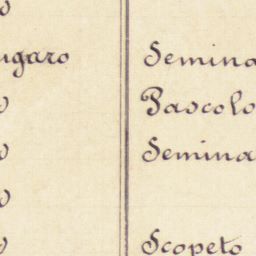 o
ugaro Semina
o Pascolo
o Semina
o
o Scopeto